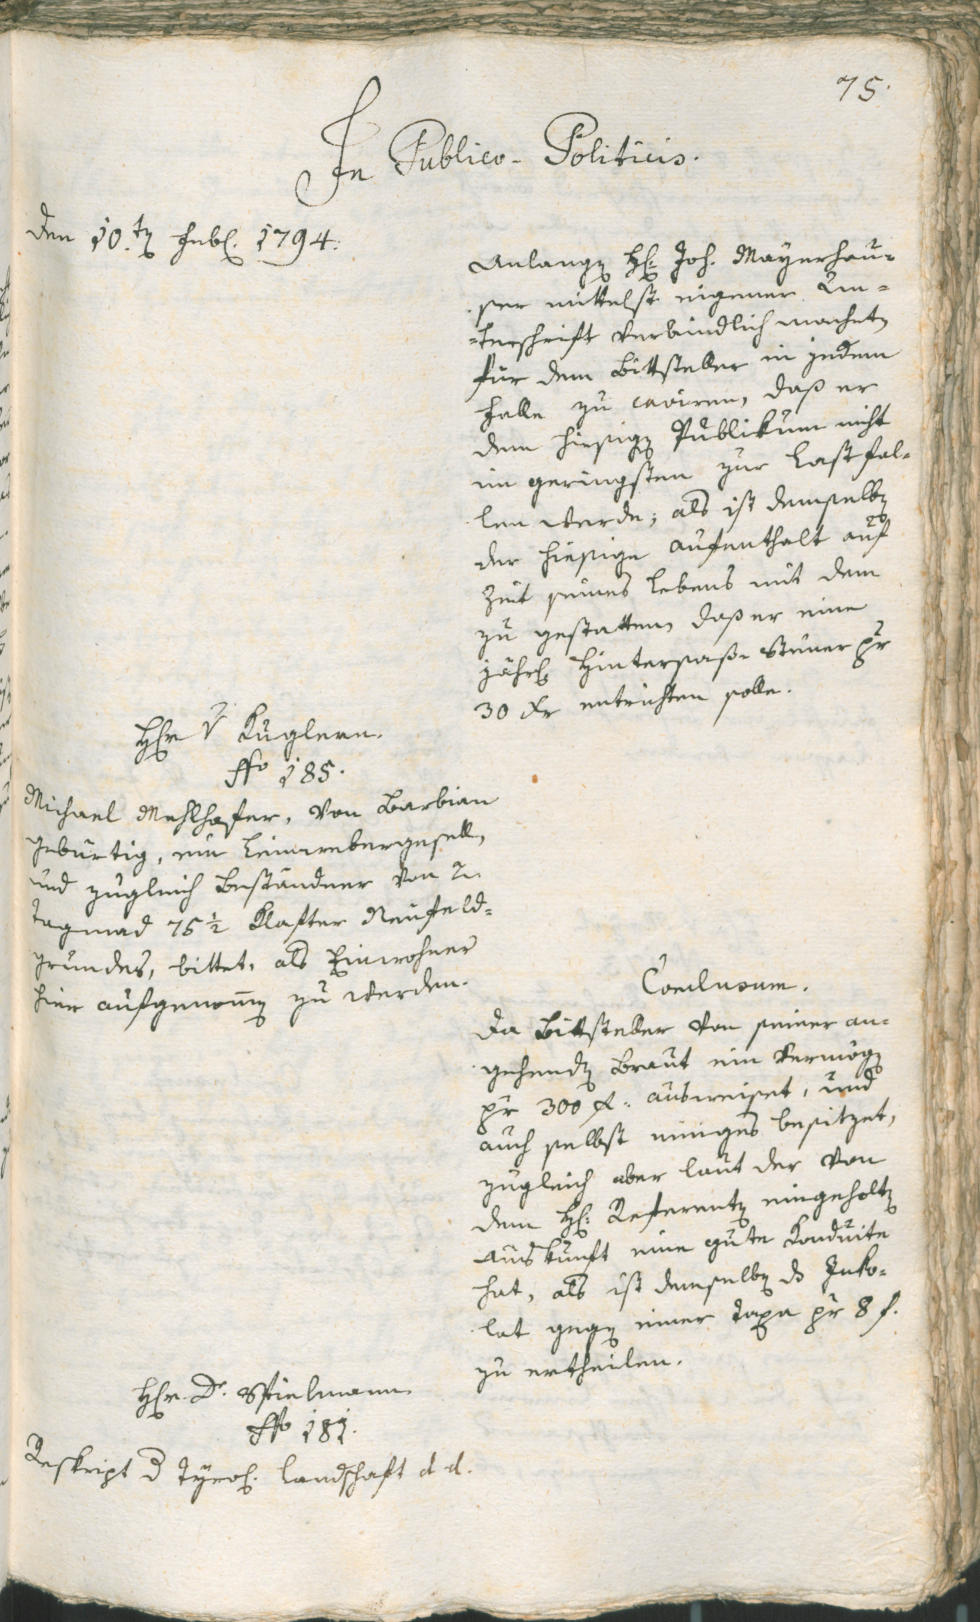 75.
In Publico-Politicis.
Den 10.t Feb. 1794.
Anlang H: Joh. Mayerhau=
ser mittelst eigener Un=
=terschrift verbindlich machet,
für dem Bittsteller in jedem
Falle zu caviren, daß er
dem hiesig Publikum nicht
im geringsten zur Last fal=
len werde; als ist demselb
der hiesige Aufenthalt auf
Zeit seines Lebens mit dem
zu gestatten, daß er eine
jährl Hintersaß-Steuer pr
30 xr entrichten solle.
Hr v Kuglern.
No 185.
Michael Mehlhafer, von Barbian
gebürtig, ein Leinwebergesell,
und zugleich Beständner von 2
Tagmad 75 1/2 Klafter Neufeld=
grundes, bittet, als Einwohner
hier aufgenom̄ zu werden.
Conclusum.
Da Bittsteller von seiner an=
gehend Braut ein Vermög
pr 300 f. ausweiset, und
auch selbst einiges besitzet,
zugleich aber laut der von
dem H: Referent eingeholt
Auskunft eine gute Konduite
hat, als ist demselb ds Inko=
lat geg einer Taxa pr 8 f.
zu ertheilen.
Hr. D. Spielmann
No 181.
Reskript d Tyrol. Landschaft d d.